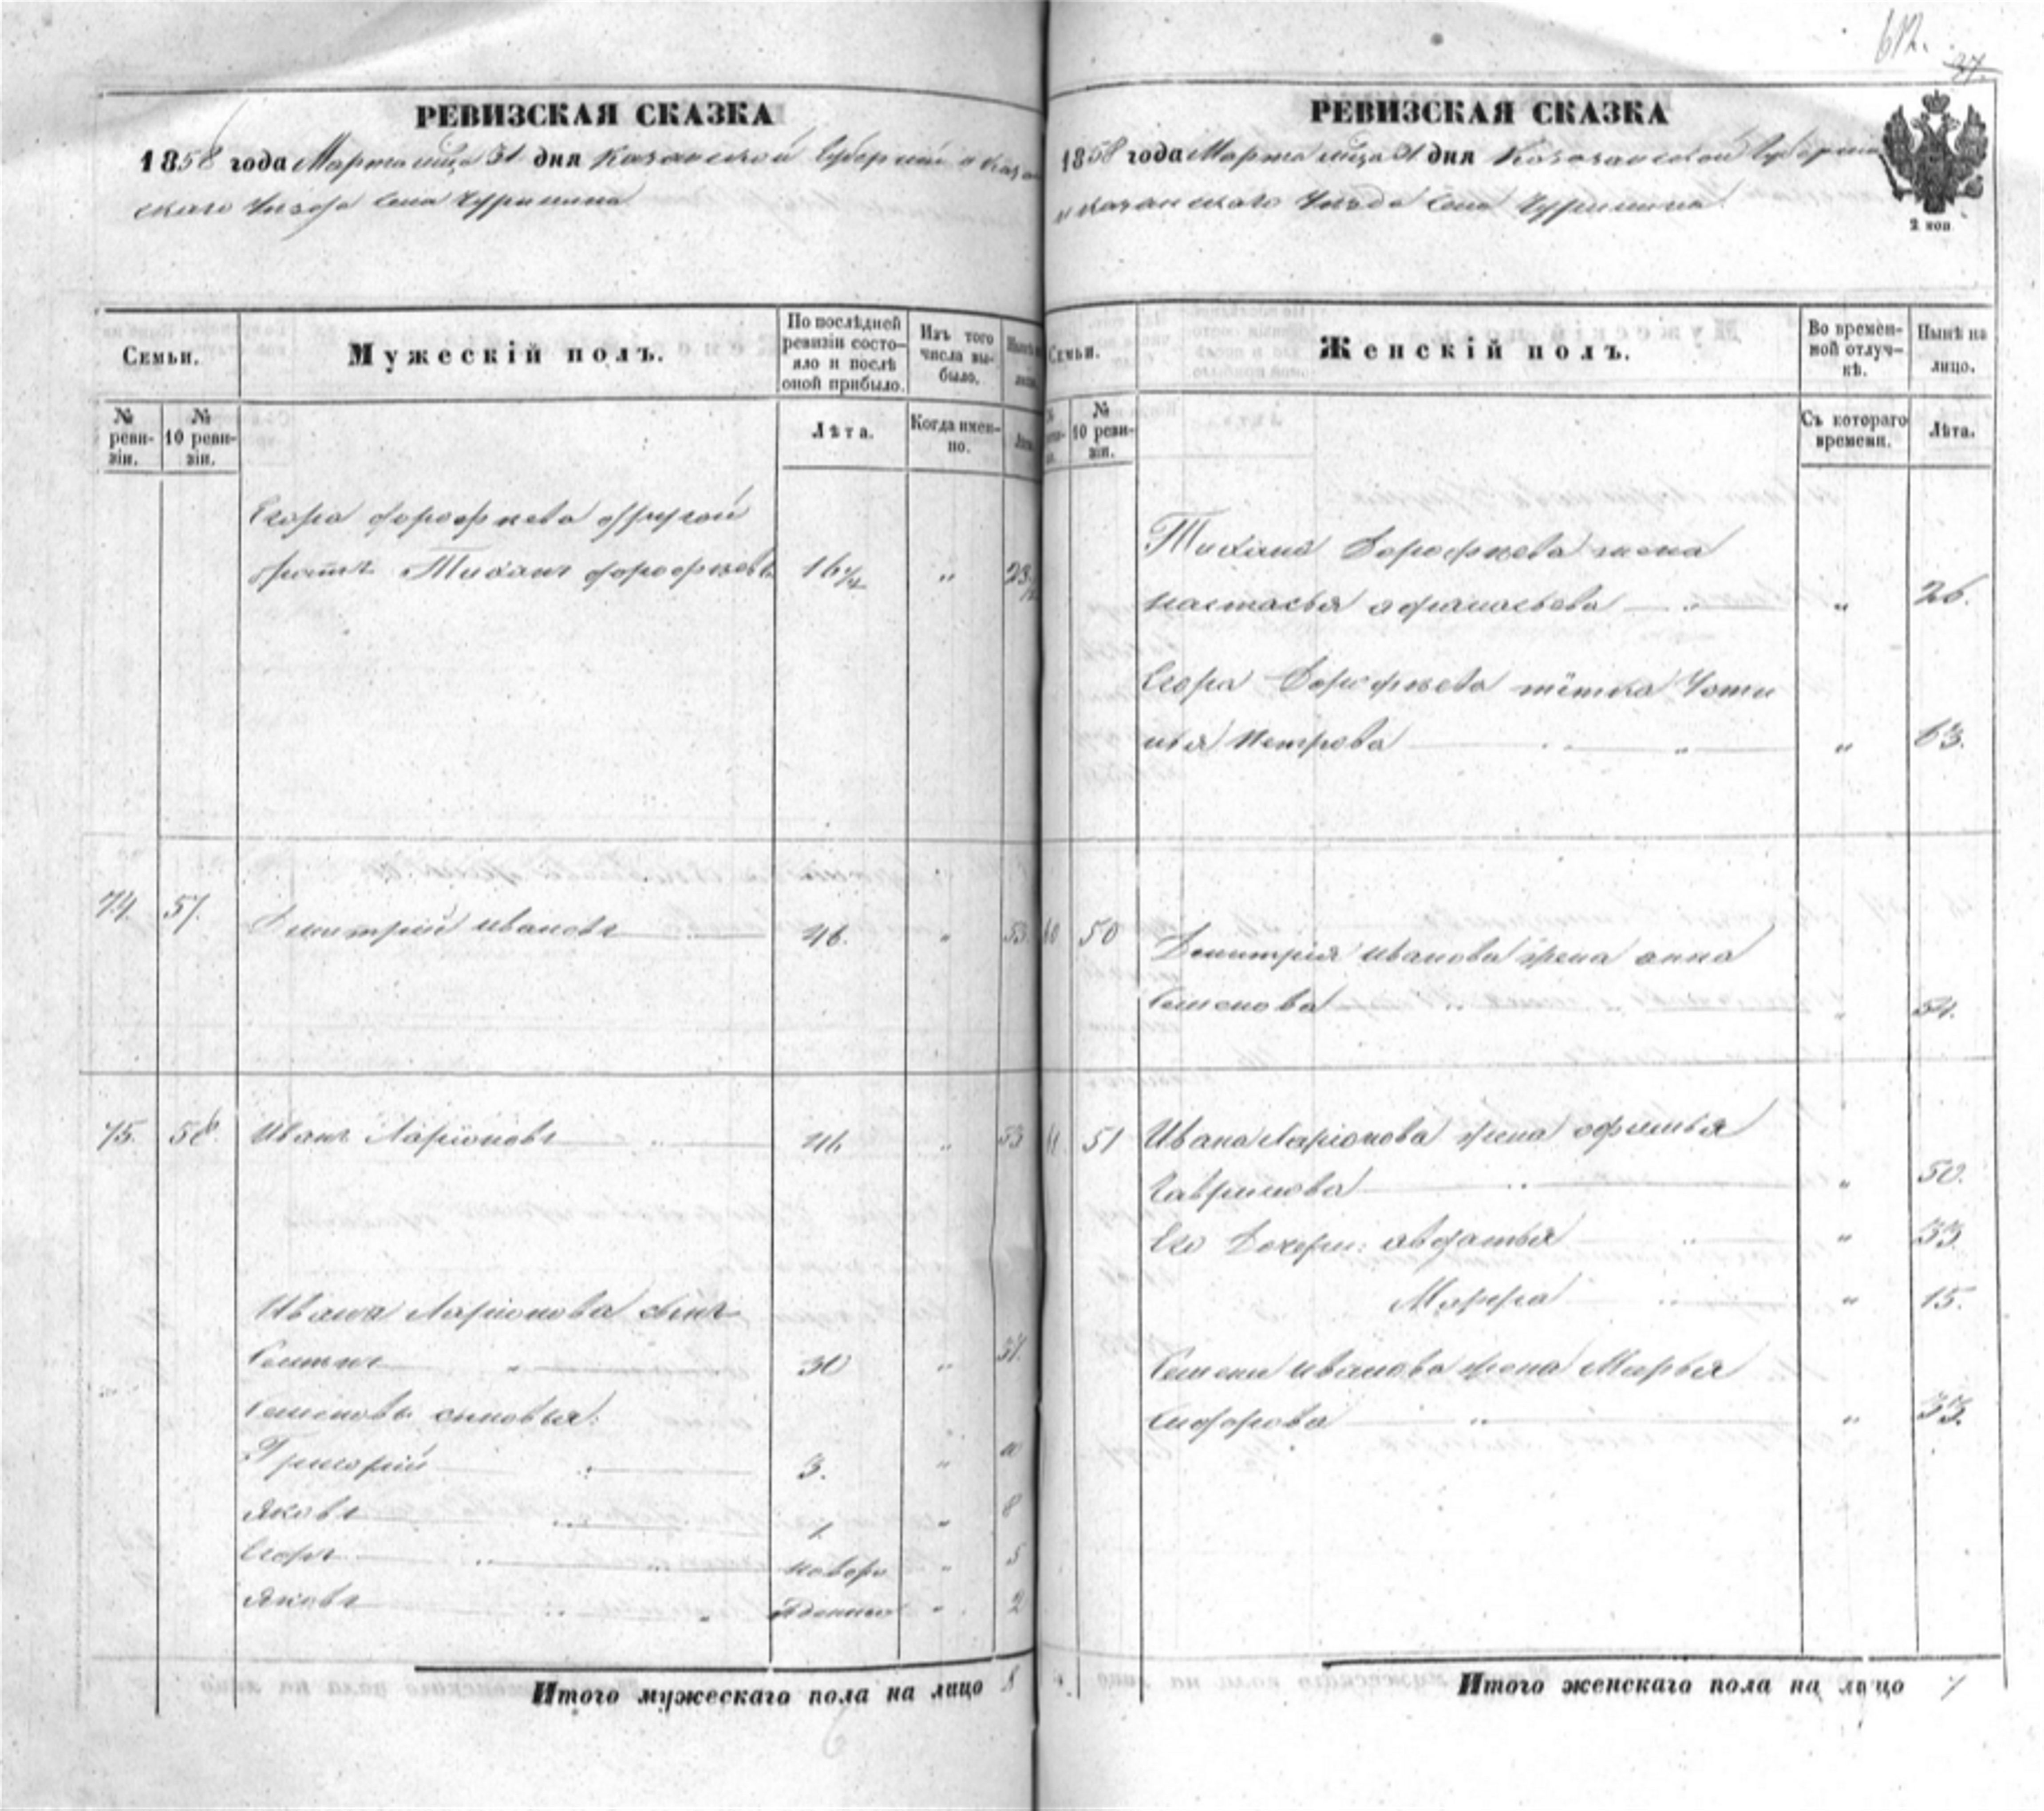 612.
37.
РЕВИЗСКАЯ СКАЗКА
1858 года Марта мѣсяца 31 дня Казанской Губернiи и Казан
скаго Уѣзда Села
Семьи.
Мужескій полъ.
По послѣдней ревизіи состо-
яло и послѣ
оной прибыло.
Изъ того
числа вы-
было.
№
реви-
зіи.
№
10 реви-
зіи.
Лѣта.
Когда имен-
но.
Егора дорофѣева другой
братъ Тихонъ дорофѣевъ 16½ " 23½
74. 57. Дмитрій ивановъ 46. " 53
75. 58. Иванъ Ларіоновъ " 46 " 53
Ивана Ларіонова сынъ
Семенъ " 30 " 37.
Семеновы сыновья:
Григорій 3. " 10
Яковъ 1 " 8
Егоръ " новоро " 5
Яковъ " жденные " 2
Итого мужескаго пола на лицо 8
РЕВИЗСКАЯ СКАЗКА
1858 года Марта мѣсяца 31 дня Казанской Губерніи
и казанскаго Уѣзда Села
2 коп
Семьи.
Женскій полъ.
Во времен-
ной отлуч-
кѣ.
Нынѣ на
лицо.
№
10 реви-
зіи.
Съ котораго
времени.
Лѣта.
Тихона Дорофѣева жена
настасья афанасьева " " 26.
Егора Дорофѣева тётка Усти
нья Петрова " " 63.
60 50 Дмитрія иванова жена анна
Семенова " " 54.
61 51 Ивана Ларіонова жена офимья
Гаврилова " " 50.
Его Дочери: авдотья " " 33
Марфа " " 15.
Семена иванова жена Марья
Сидорова " " 33.
Итого женскаго пола на лицо 7